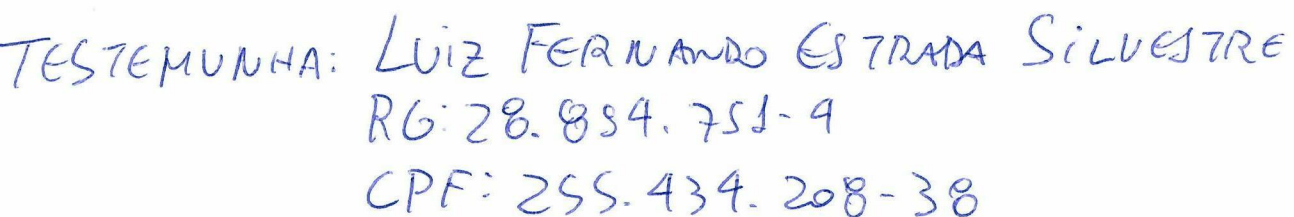 TESTEMUNHA: LUIZ FERNANDO ESTRADA SILVESTRE
RG: 28.854.751-9
CPF: 255.434.208-38